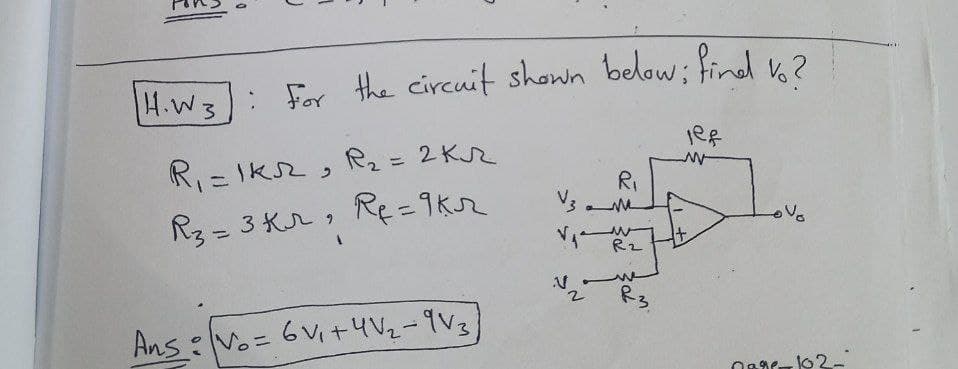 H.W3 : For the circuit shown below; find Vo?
R1 = 1KΩ , R2 = 2KΩ
R3 = 3KΩ , Rf = 9KΩ
Rf
R1
V3
-
Vo
V1
+
R2
V2
R3
Ans : Vo = 6V1 + 4V2 - 9V3
page-102-